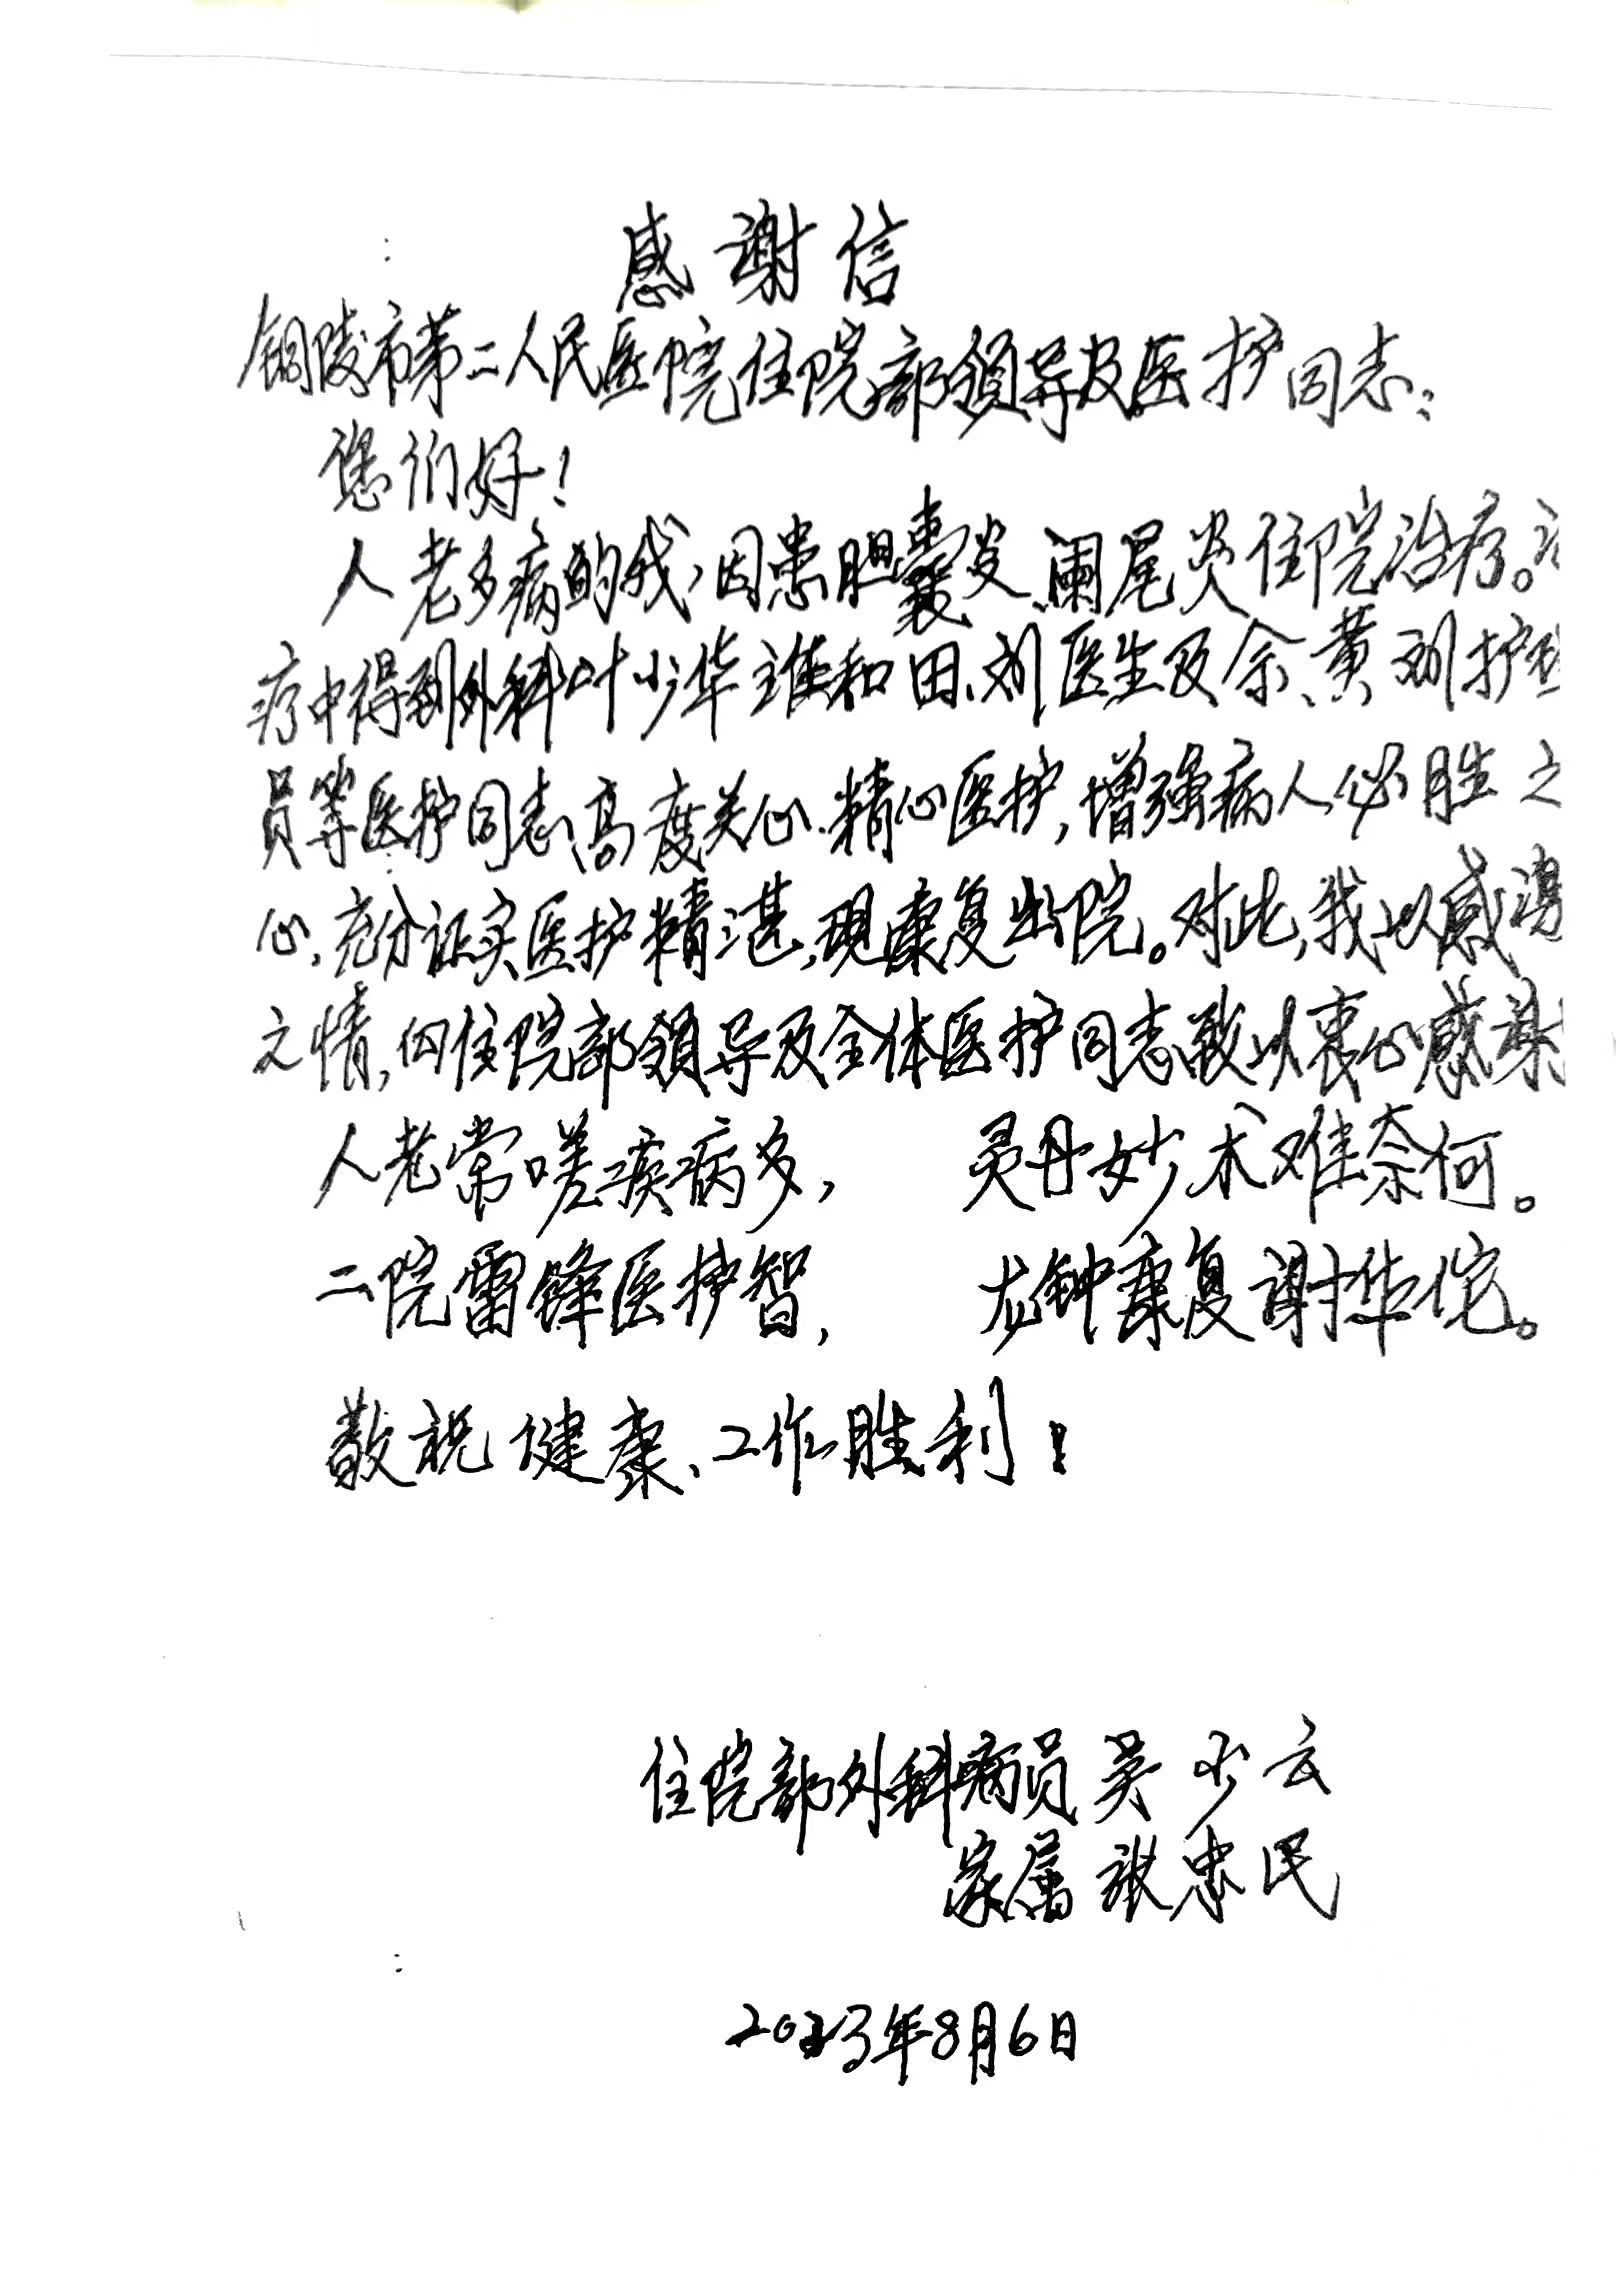 感谢信
铜陵市第二人民医院住院部领导及医护同志:
您们好!
人老多病的我,因患胆囊炎、阑尾炎住院治疗。治
疗中得到外科叶少华主任和田、刘医生及余、黄、刘护理
员等医护同志高度关心、精心医护,增强病人必胜之
心,充分证实医护精湛,现康复出院。对此,我以感激
之情,向住院部领导及全体医护同志致以衷心感谢
人老常嗟疾病多, 灵丹妙术难奈何。
二院雷锋医护智, 龙钟康复谢华佗。
敬祝健康、工作胜利!
住院部外科病员 吴少云
家属 张忠民
2023年8月6日